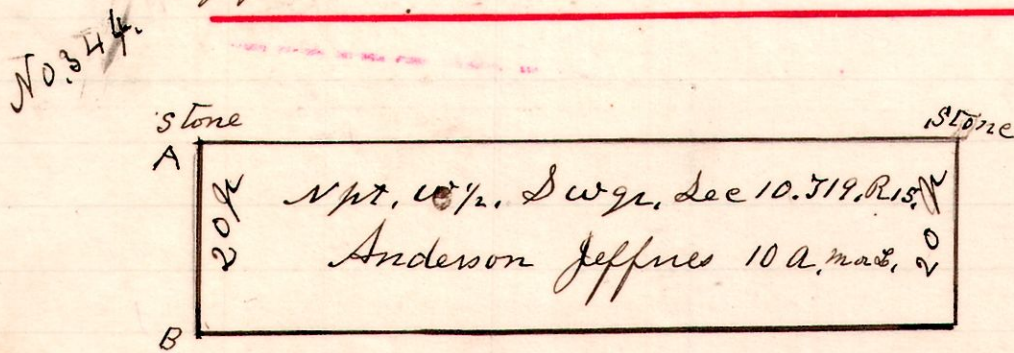 No. 344.
Stone
Stone
A
20 p
Npt. W 1/2. S W qr, Sec 10. T19. R15.
20 p
Anderson Jeffries 10 A. m or L.
B